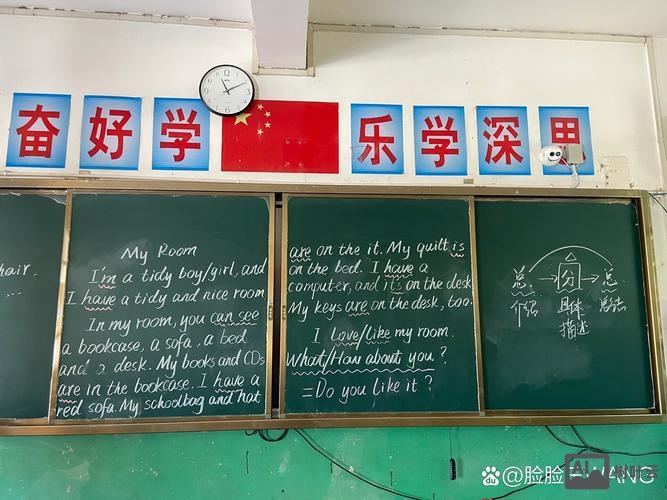 奋 好 学 乐 学 深 思
hair,
...
My Room
I'm a tidy boy/girl, and
I have a tidy and nice room
In my room, you can see
a bookcase, a sofa, a bed
and a desk. My books and CDs
are in the bookcase. I have a
red sofa. My schoolbag and hat
are on the it. My quilt is
on the bed. I have a
computer, and it's on the desk
My keys are on the desk, too.
I love/like my room.
What/How about you?
=Do you like it?
总 → 分 → 总
介绍 具体 总结
描述
@脸脸
WANG